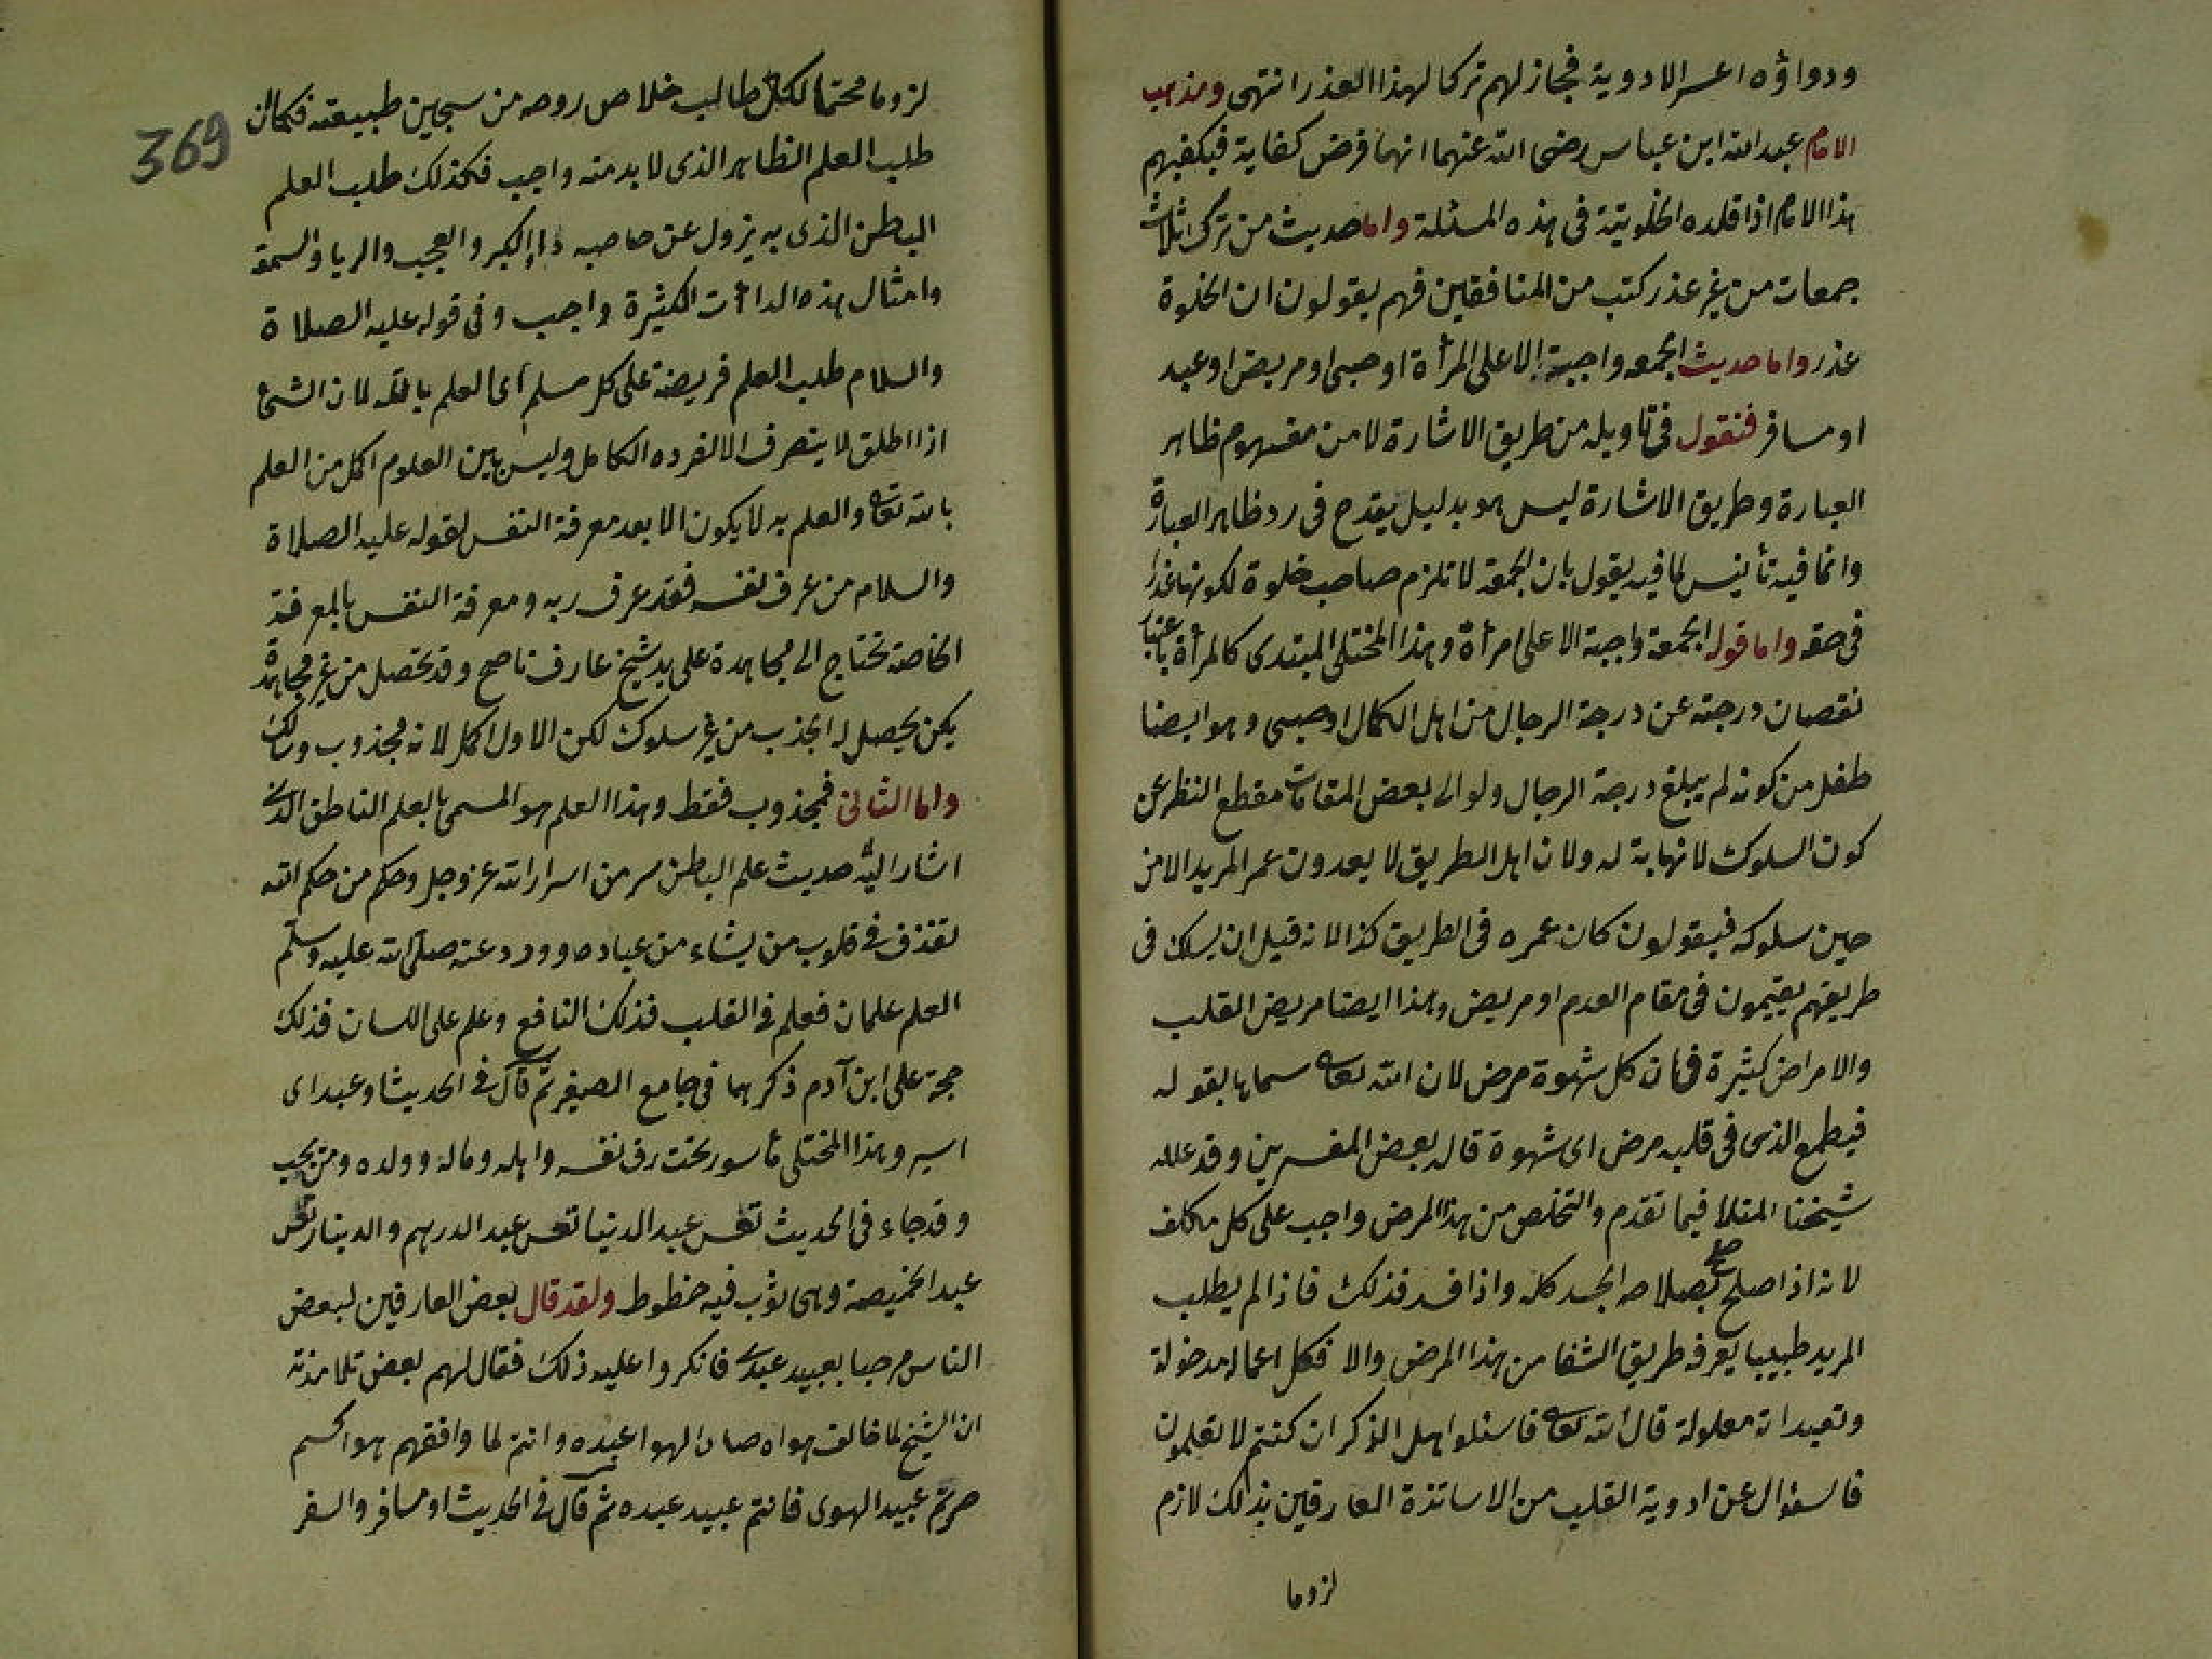 ودواؤه اعسر الادوية فجاز لهم تركا لهذا العذر انتهى ومذهب
الامام عبد الله ابن عباس رضى الله عنهما انها فرض كفاية فيكفيهم
هذا الامام اذا قلده الخلوتية فى هذه المسئلة واما حديث من ترك ثلاث
جمعات من غير عذر كتب من المنافقين فهم يقولون ان الخلوة
عذر واما حديث الجمعه واجبة الا على المرأة او صبى او مريض او عبد
او مسافر فنقول فى تاويله من طريق الاشارة لا من مفهوم ظاهر
العبارة وطريق الاشارة ليس هو بدليل يقدح فى رد ظاهر العبارة
وانما فيه تأنيس لما فيه يقول بان الجمعة لا تلزم صاحب خلوة لكونها عذرا
فى حقه واما قوله الجمعة واجبة الا على امرأة وهذا المختلى المبتدى كالمرأة باعتبار
نقصان درجته عن درجة الرجال من اهل الكمال او صبى وهو ايضا
طفل من كونه لم يبلغ درجة الرجال ولو الى بعض المقامات مقطع النظر عن
كون السلوك لا نهاية له ولان اهل الطريق لا يعدون عمر المريد الا من
حين سلوكه فيقولون كان عمره فى الطريق كذا لانه قبل ان يسلك فى
طريقهم يقيمون فى مقام العدم او مريض وهذا ايضا مريض القلب
والامراض كثيرة فان كل شهوة مرض لان الله تعالى سماها بقوله
فيطمع الذى فى قلبه مرض اى شهوة قاله بعض المفسرين وقد علله
شيخنا المنلا فيما تقدم والتخلص من هذا المرض واجب على كل مكلف
لانه اذا صلح صلح بصلاحه الجسد كله واذا فسد فذلك فاذا لم يطلب
المريد طبيبا يعرفه طريق الشفا من هذا المرض والا فكل اعماله مدخولة
وتعبداته معلولة قال الله تعالى فاسئلوا اهل الذكر ان كنتم لا تعلمون
فالسؤال عن ادوية القلب من الاساتذة العارفين بذلك لازم
لزوما
369
لزوما محتما لكل طالب خلاص روحه من سجين طبيعته فكما ان
طلب العلم الظاهر الذى لا بد منه واجب فكذلك طلب العلم
الباطن الذى به يزول عن صاحبه داء الكبر والعجب والريا والسمعة
وامثال هذه الداأت الكثيرة واجب وفى قوله عليه الصلاة
والسلام طلب العلم فريضة على كل مسلم اى العلم بالله لان الشئ
اذا اطلق لا ينصرف الا لفرده الكامل وليس بين العلوم اكمل من العلم
بالله تعالى والعلم به لا يكون الا بعد معرفة النفس لقوله عليه الصلاة
والسلام من عرف نفسه فقد عرف ربه ومعرفة النفس بالمعرفة
الخاصة تحتاج الى مجاهدة على يد شيخ عارف ناصح وقد تحصل من غير مجاهدة
يكن يحصل له الجذب من غير سلوك لكن الاول اكمل لانه مجذوب وسالك
واما الثانى فمجذوب فقط وهذا العلم هو المسمى بالعلم الباطن الذى
اشار اليه حديث علم الباطن سر من اسرار الله عز وجل وحكم من حكم الله
تقذف فى قلوب من يشاء من عباده وورد عنه صلى الله عليه وسلم
العلم علمان فعلم فى القلب فذلك النافع وعلم على اللسان فذلك
حجة على ابن آدم ذكرهما فى جامع الصغير ثم قال فى الحديث او عبد اى
اسير وهذا المختلى مأسور تحت رق نفسه واهله وماله وولده ومن يحب
وقد جاء فى الحديث تعس عبد الدنيا تعس عبد الدرهم والدينار تعس
عبد الخميصة وهى ثوب فيه خطوط ولقد قال بعض العارفين لبعض
الناس مرحبا بعبيد عبدى فانكروا عليه ذلك فقال لهم بعض تلامذته
ان الشيخ لما خالف هواه صار الهوا عبده وانتم لما وافقهم هواكم
صرتم عبيد الهوى فانتم عبيد عبده ثم قال فى الحديث او مسافر والسفر